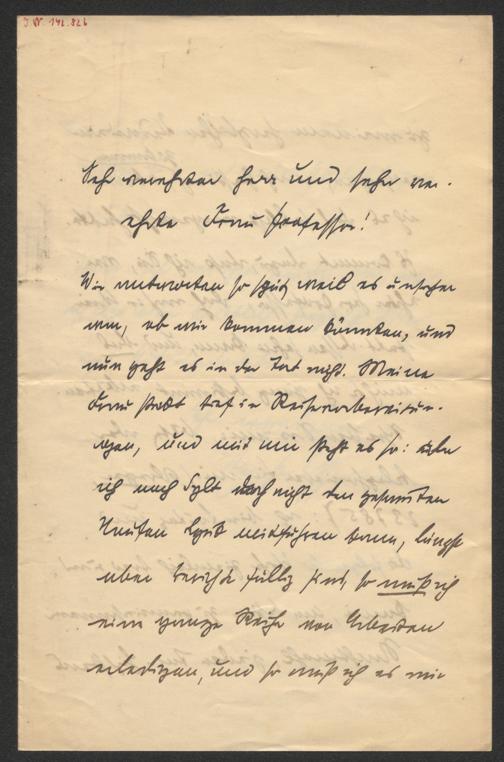 J.N. 142.826
Sehr verehrter Herr und sehr ver-
ehrte Frau Professor!
Wir antworten so spät, weil es unsicher
war, ob wir kommen könnten, und
nun geht es in der Tat nicht. Meine
Frau steckt tief in Reisevorbereitun-
gen, und mit mir steht es so: da
ich nach Sylt doch nicht den gesamten
Haufen mitführen kann, längst
aber Berichte fällig sind, so muß ich
eine ganze Reihe von Arbeiten
erledigen, und so muß ich es mir